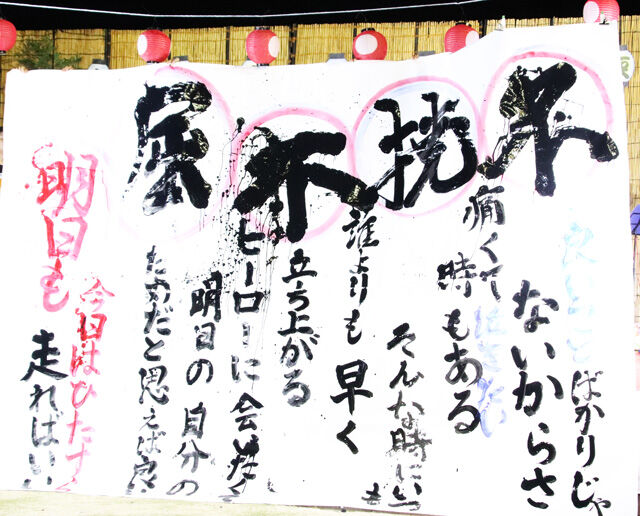 不撓不屈
良いこと
ばかりじゃ
ないからさ
痛くて
時もある
そんな時にいつも
誰よりも早く
立ち上がる
ヒーローに会いたく
明日の自分の
ためだと思えば良い
今日はひたすら
走ればいい
明日も